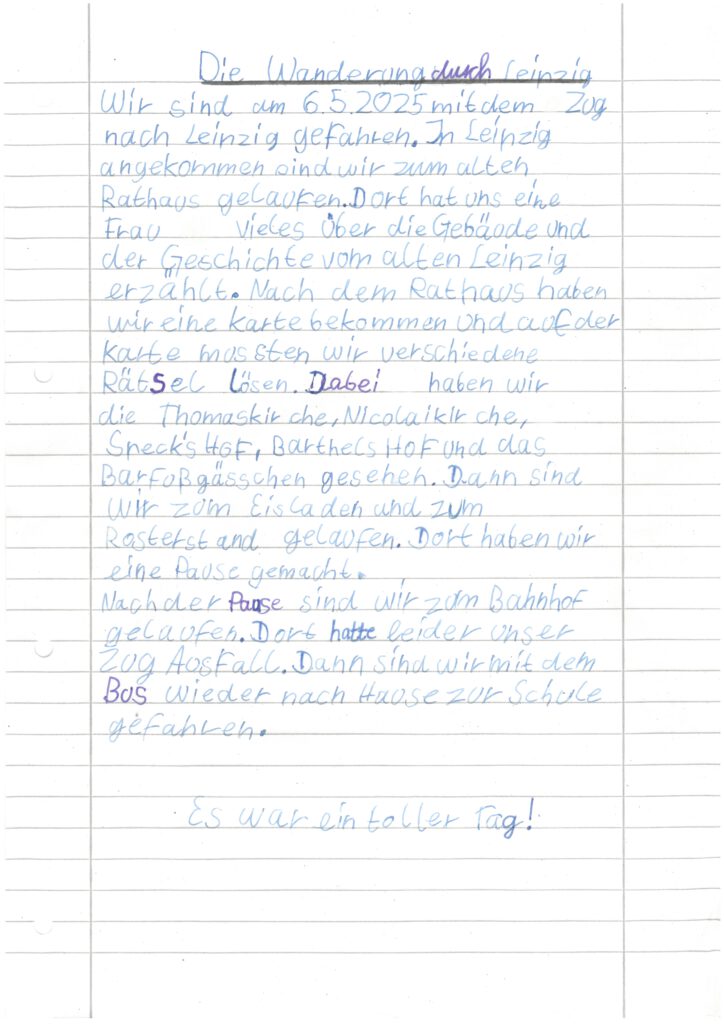 Die Wanderung durch Leipzig
Wir sind am 6.5.2025 mit dem Zug
nach Leipzig gefahren. In Leipzig
angekommen sind wir zum alten
Rathaus gelaufen. Dort hat uns eine
Frau vieles über die Gebäude und
der Geschichte vom alten Leipzig
erzählt. Nach dem Rathaus haben
wir eine Karte bekommen und auf der
Karte mussten wir verschiedene
Rätsel lösen. Dabei haben wir
die Thomaskirche, Nicolaikirche,
Speck's Hof, Barthels Hof und das
Barfußgässchen gesehen. Dann sind
wir zum Eisladen und zum
Rosterstand gelaufen. Dort haben wir
eine Pause gemacht.
Nach der Pause sind wir zum Bahnhof
gelaufen. Dort hatte leider unser
Zug Ausfall. Dann sind wir mit dem
Bus wieder nach Hause zur Schule
gefahren.
Es war ein toller Tag!